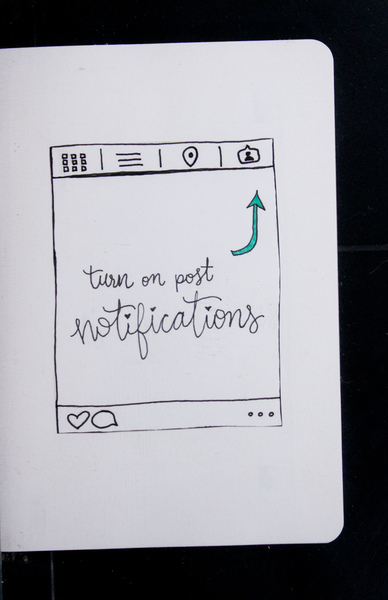 turn on post
notifications